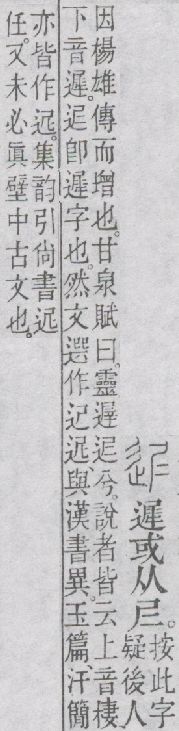 遲或从𡰥。按此字
疑後人
因楊雄傳而增也。甘泉賦曰。靈遟迡兮。說者皆云上音棲。
下音遲。迡卽遲字也。然文選作迡、與漢書異。玉篇、汗簡
亦皆作迡。集韵引尙書迡
任。又未必眞壁中古文也。